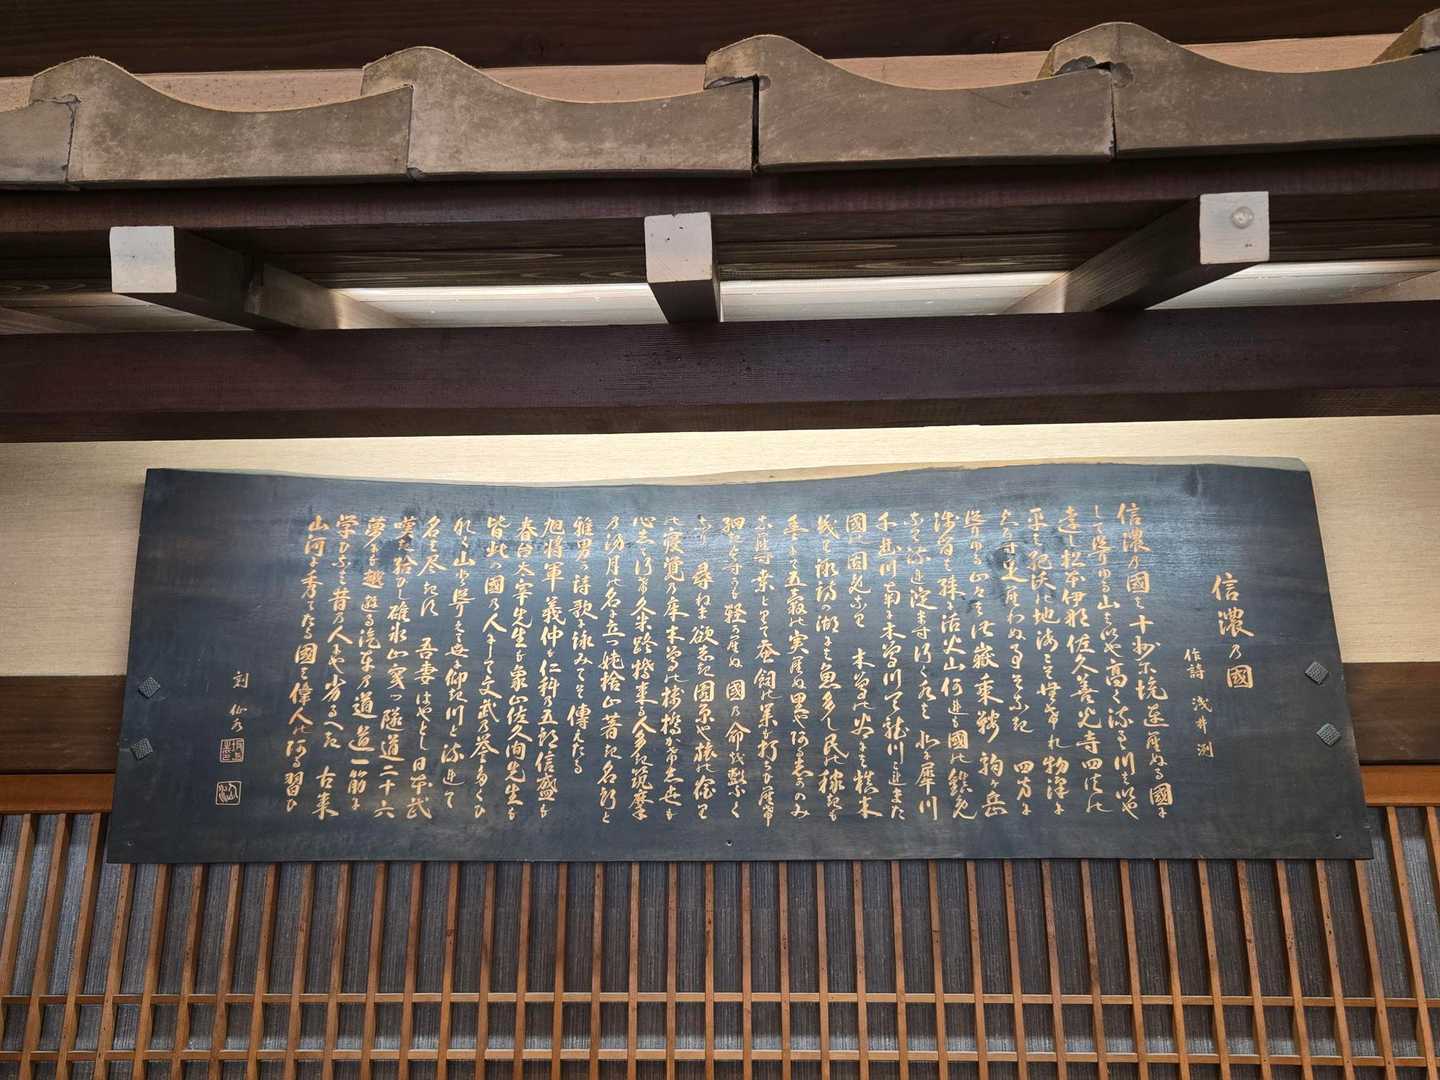 信濃乃國
作詩 浅井洌
信濃乃國は十州に境連ぬる國に
して聳ゆる山はいや高く流るる川はいや
遠し松本伊那佐久善光寺四つの
平は肥沃の地海こそなけれ物澤に
四方に
聳ゆる山々は御嶽乗鞍駒ヶ岳
浅間は殊に活火山何れも國の鎮め
流れ淀まず行く水は北に犀川
千曲川南に木曽川天龍川これまた
國の固めなり 木曽の
諏訪の湖には魚多し民の
五穀の実
桑とりて蚕飼の業の打ち
細きよすがも軽からぬ國の命を繋ぐ
なり 尋ねま欲しき園原や旅の
寝覚の床木曽の桟かけし世も
心して行け久米路橋来る人多き筑摩
の湯月の名に立つ姨捨山著き名所と
雅男が詩歌に詠みてぞ傳えたる
旭将軍義仲も仁科の五郎信盛も
春台太宰先生も象山佐久間先生も
皆此の國の人にして文武の
山と聳えて世に仰ぎ川と流れて
名は尽ず 吾妻はやとし日本武
嘆き給いし碓氷山穿つ隧道二十六
夢にも越ゆる汽車の道道一筋に
学びなば昔の人にや劣るべき 古来
山河に秀でたる國は偉人のある習い
刻